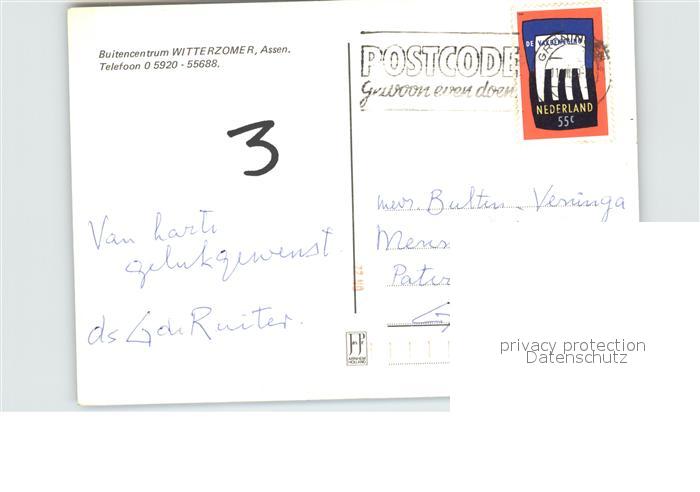 Buitencentrum WITTERZOMER, Assen.
Telefoon 0 5920 - 55688.
POSTCODE
Gewoon even doen
NEDERLAND
55c
3
Van harte
gelukgewenst.
ds G de Ruiter.
mevr. Bulten - Veninga
JosPé
ARNHEM
HOLLAND
privacy protection
Datenschutz